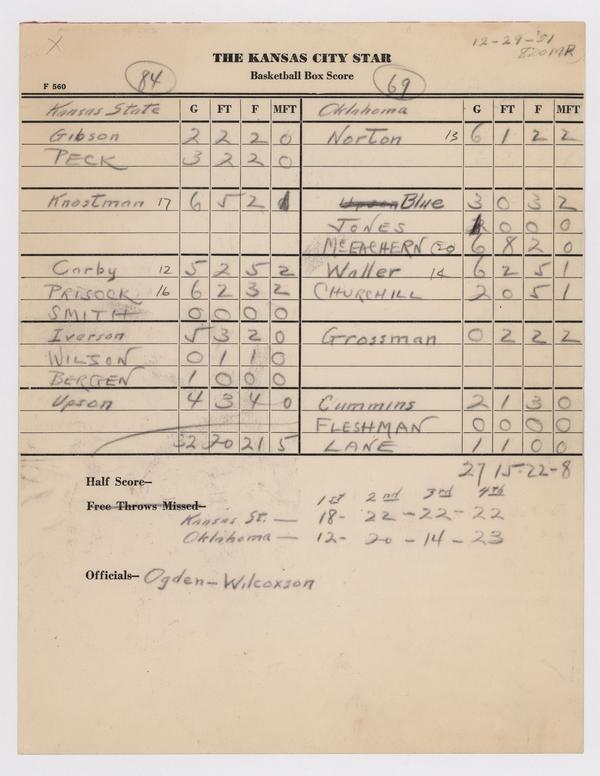 X
12-29-'51
THE KANSAS CITY STAR
Basketball Box Score
84
69
F 560
Kansas State G FT F MFT Oklahoma G FT F MFT
Gibson 2 2 2 0 Norton 13 6 1 2 2
PECK 3 2 2 0
Knostman 17 6 5 2 1 Blue 3 0 3 2
JONES 1 0 0 0
McEACHERN 20 6 8 2 0
Carby 12 5 2 5 2 Waller 14 6 2 5 1
PRISOCK 16 6 2 3 2 CHURCHILL 2 0 5 1
SMITH 0 0 0 0
Iverson 5 3 2 0 Grossman 0 2 2 2
WILSON 0 1 1 0
BERGEN 1 0 0 0
Upson 4 3 4 0 Cummins 2 1 3 0
FLESHMAN 0 0 0 0
32 20 21 5 LANE 1 1 0 0
27 15-22-8
Half Score—
1st 2nd 3rd 4th
Free Throws Missed—
Kansas St. — 18- 22 - 22 - 22
Oklahoma — 12- 20 - 14 - 23
Officials— Ogden — Wilcoxson